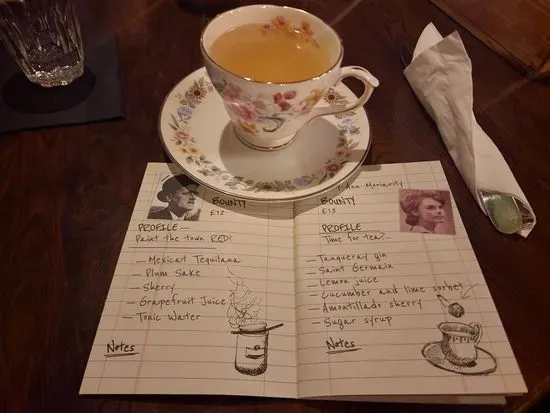 BOUNTY
£12
PROFILE
Paint the town RED!
– Mexicat Tequilana
– Plum Sake
– Sherry
– Grapefruit Juice
– Tonic Water
Notes
Ann Moriarity
BOUNTY
£13
PROFILE
Time for tea?..
– Tanqueray gin
– Saint Germain
– Lemon juice
– Cucumber and lime sorbet
– Amontillado sherry
– Sugar syrup
Notes